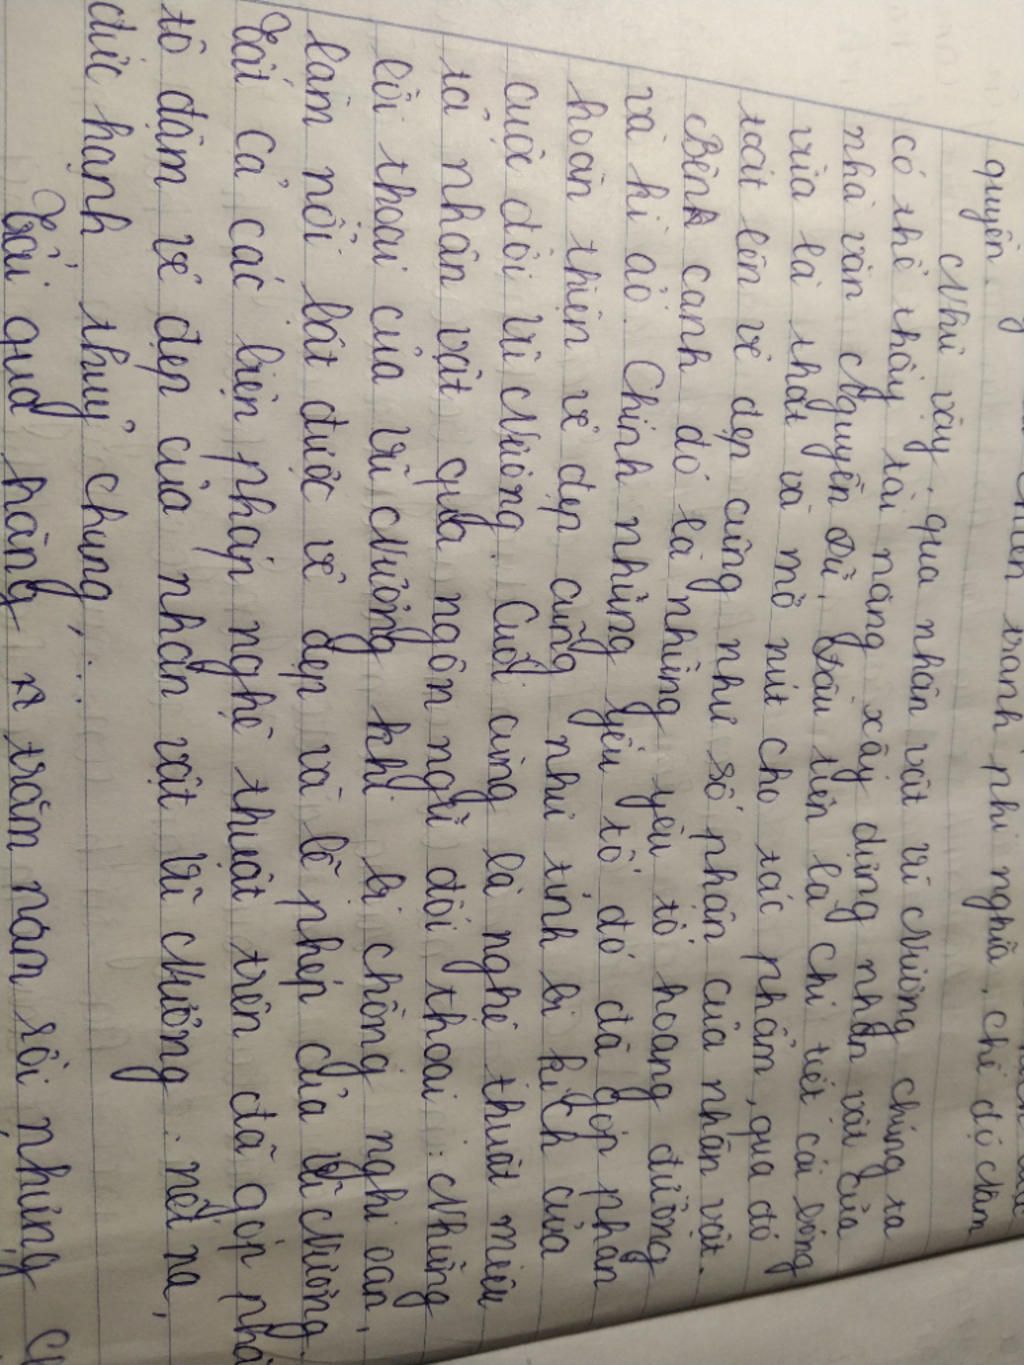 chiến tranh phi nghĩa, chế độ nam
quyền.
Như vậy, qua nhân vật Vũ Nương chúng ta
có thể thấy tài năng xây dựng nhân vật của
nhà văn Nguyễn Dữ. Đầu tiên là chi tiết cái bóng
vừa là thắt và mở nút cho tác phẩm, qua đó
toát lên vẻ đẹp cũng như số phận của nhân vật.
Bênh cạnh đó là những yếu tố hoang đường
và kì ảo. Chính những yếu tố đó đã góp phần
hoàn thiện vẻ đẹp cũng như tính bi kịch của
cuộc đời Vũ Nương. Cuối cùng là nghệ thuật miêu
tả nhân vật qua ngôn ngữ đối thoại: Những
lời thoại của Vũ Nương khi bị chồng nghi oan,
làm nổi bật được vẻ đẹp và lễ phép của Vũ Nương.
Tất cả các biện pháp nghệ thuật trên đã góp phầ
tô đậm vẻ đẹp của nhân vật Vũ Nương: nết na,
đức hạnh thuỷ chung,...
Trải qua hàng trăm năm rồi nhưng